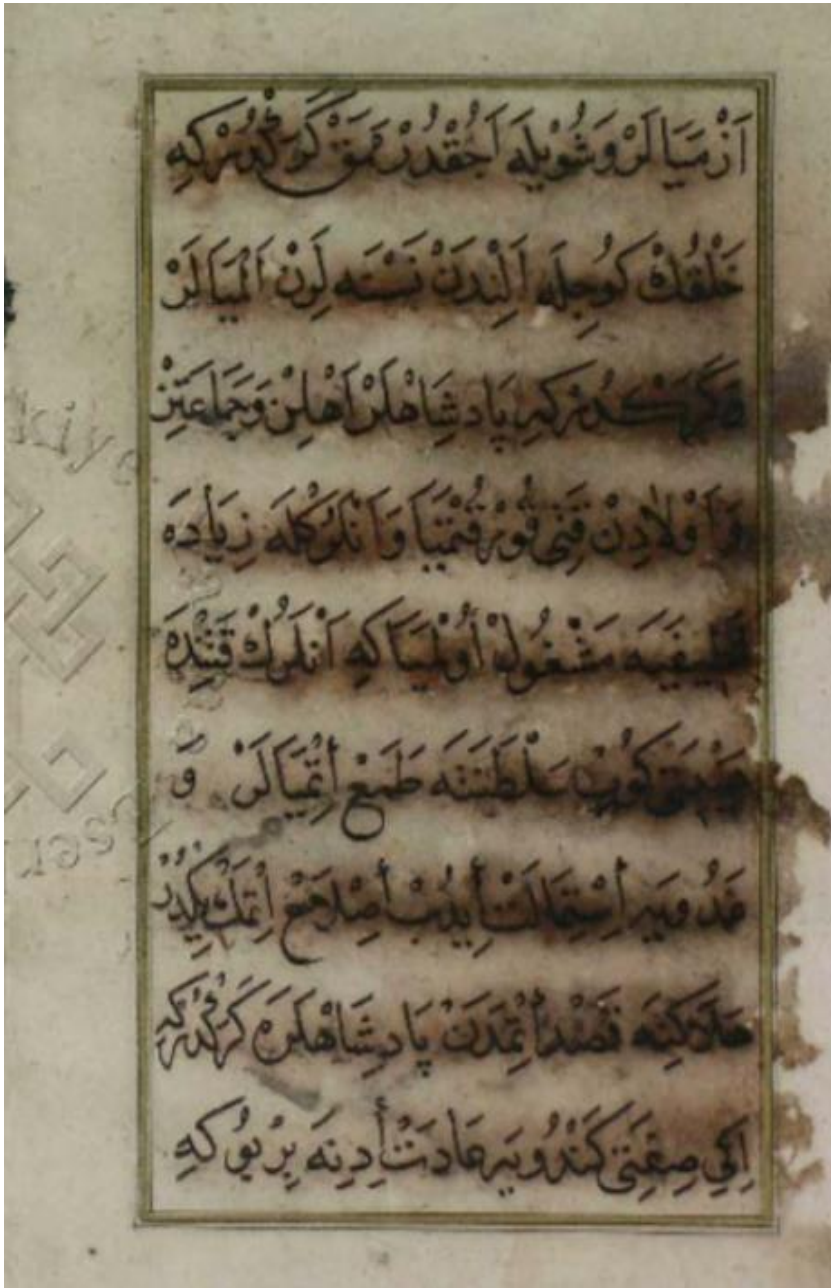 اَزْمَيَالَرْ وَشُوْيْلَه اَجُقْدُرْ مَقْ كَرَكْدُرْكِه
خَلْقُكْ كُوجِلَه اَلِنْدَنْ نَسْتَه لَرِنْ اَلْمَيَالَرْ
وَكَرَكْدُرْكِه پَادِشَاهْلَرْ اَهْلِنْ وَجَمَاعَتِنْ
وَاَوْلَادِنْ قَتِى قُوْرْقُتْمَيَا وَاَنْلَرُكْلَه زِيَادَه
لَطِيفَيَه مَشْغُولْ اُوْلْمَيَا كِه اَنْلَرُكْ قَتِنْدَه
كُورُبْ سَلْطَنَتَه طَمَعْ اِتْمَيَالَرْ وَ
عَدُويَه اِسْتِمَالَتْ اِيدُبْ اِصْلَاحْ اِتْمَكْ يَكْدُرْ
هَلَاكِنَه قَصْدْ اِتْمَدَنْ پَادِشَاهْلَرَه كَرَكْدُرْكِه
اِكِي صِفَتِى كَنْدُويَه عَادَتْ اِدِنَه بِرْ بُو كِه